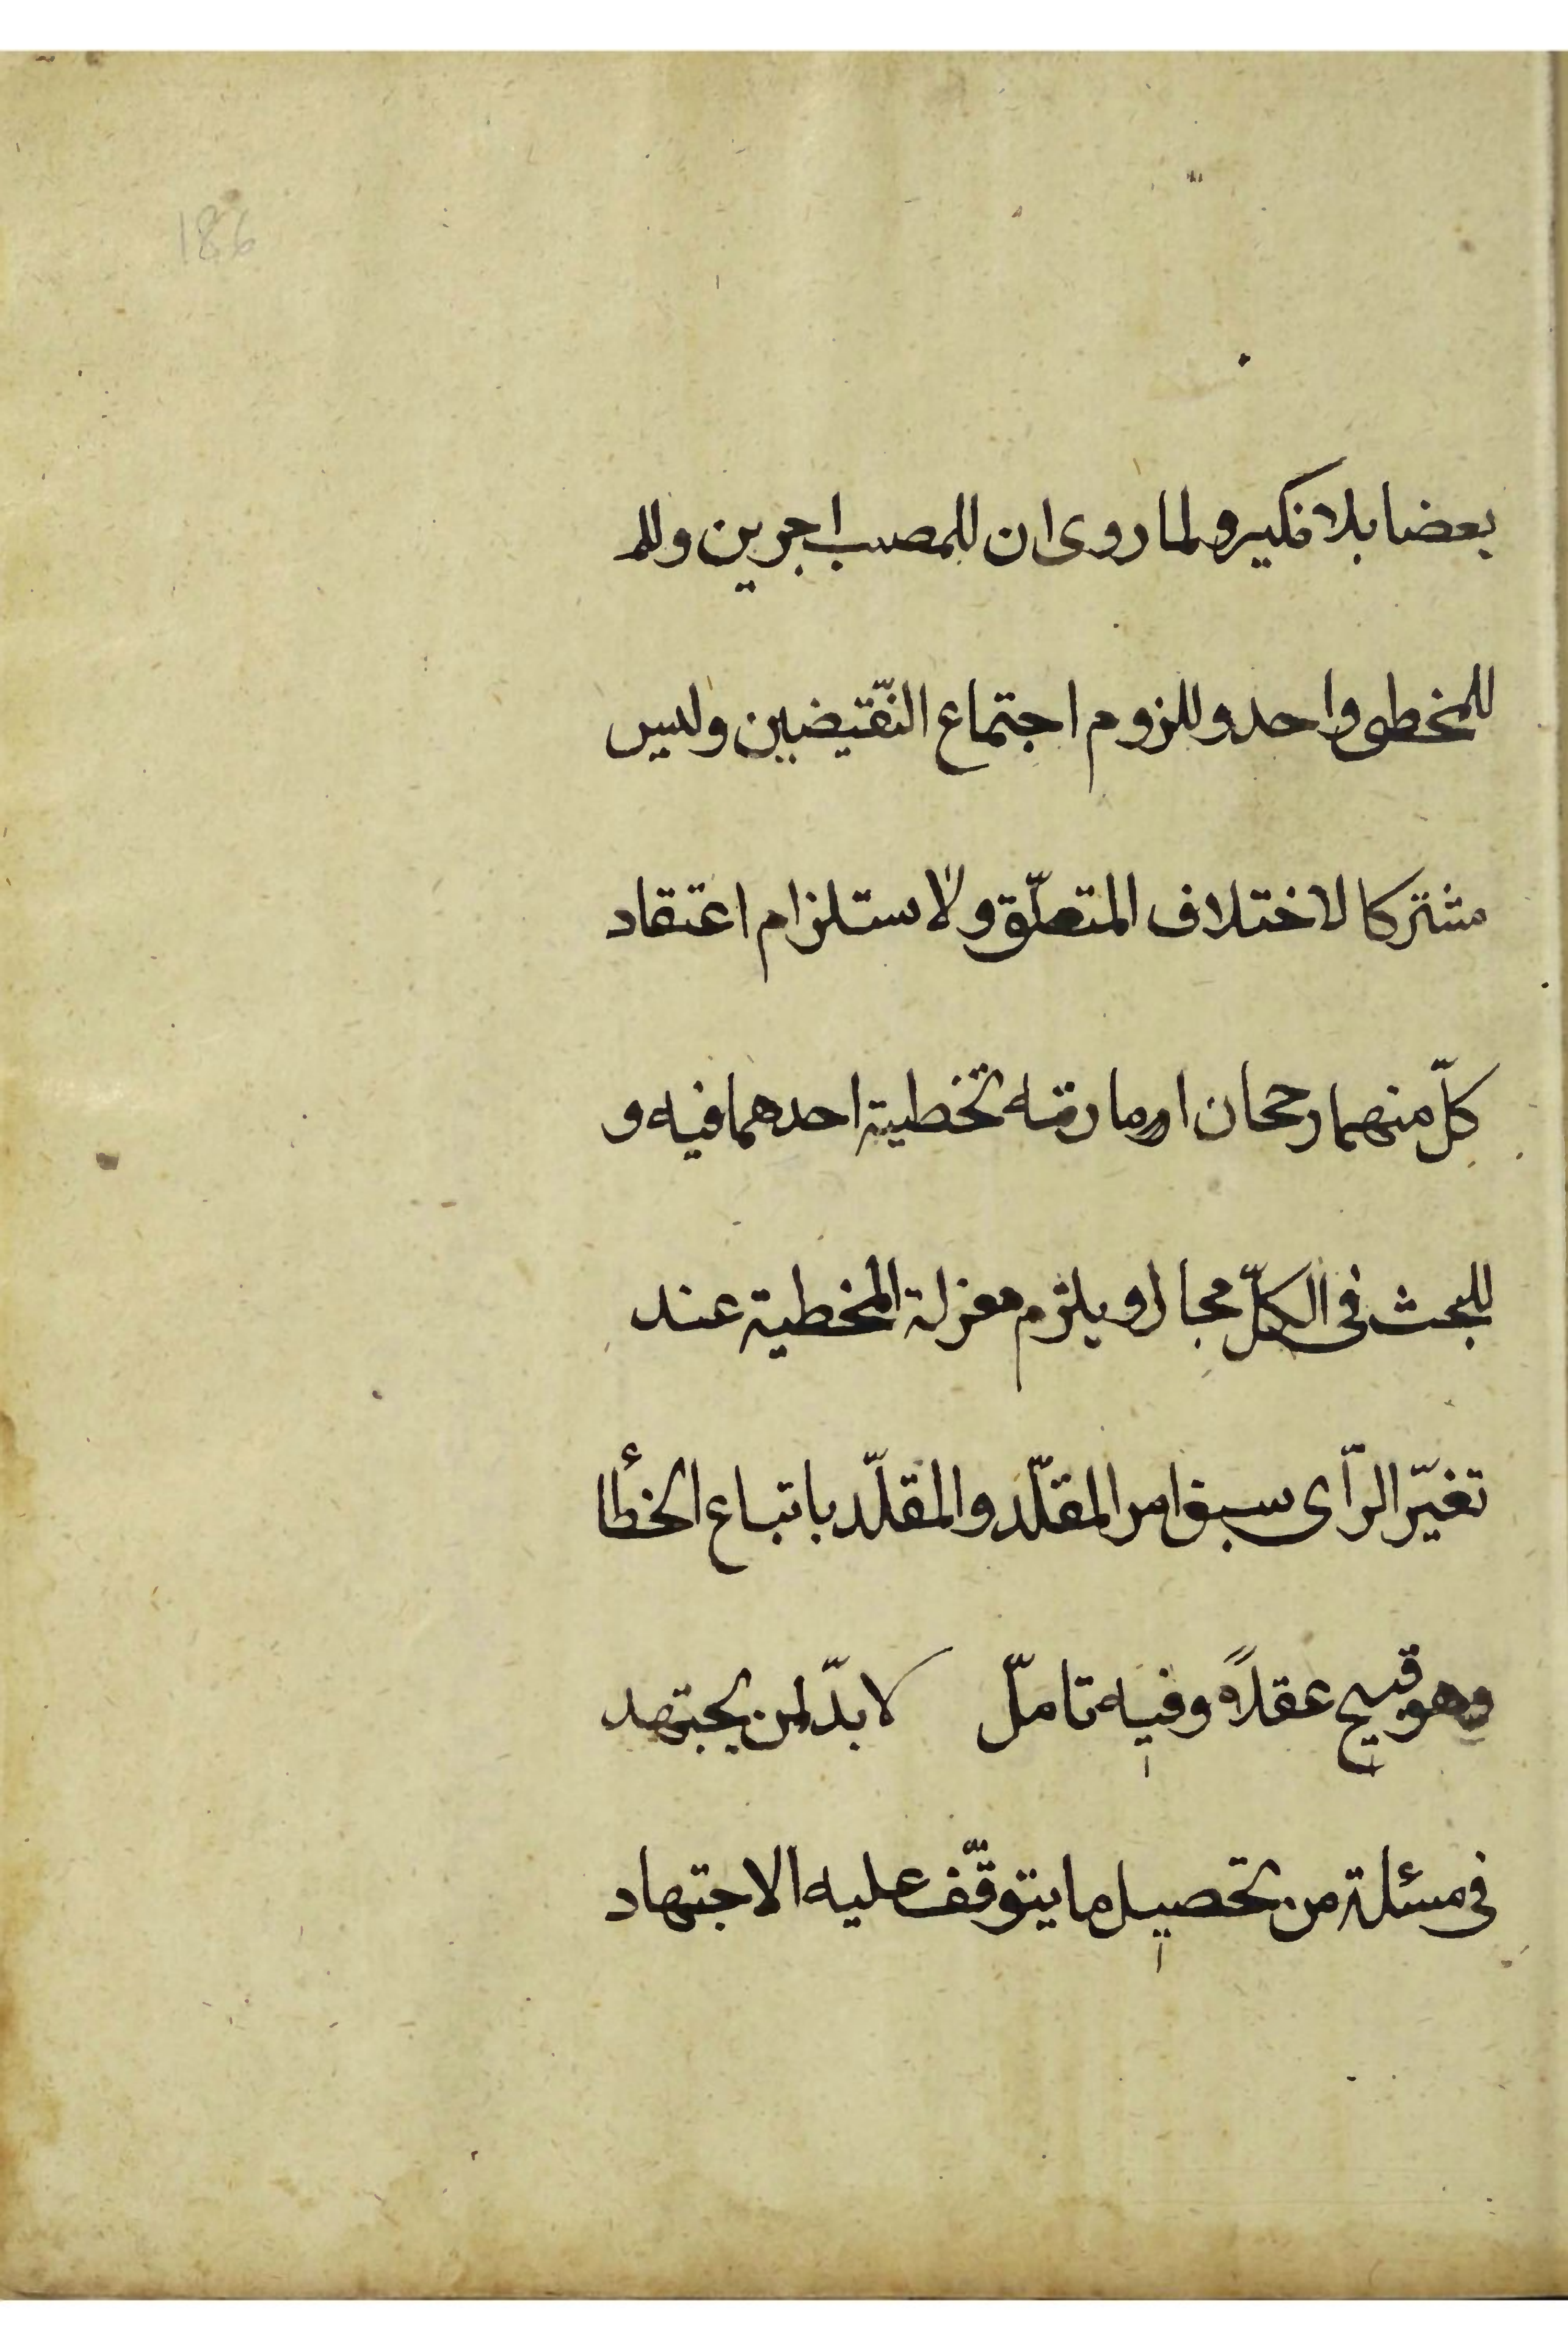 186
بعضا بلا نكير ولما روى ان للمصيب اجرين ولل
للمخطى واحد وللزوم اجتماع النّقيضين وليس
مشتركا لاختلاف المتعلّق ولاستلزام اعتقاد
كلّ منهما رجحان امارته تخطية احدهما فيه و
للبحث فى الكلّ مجال و يلزم المخطية عند
تغيّر الرّاى سبق امر المقلّد والمقلّد باتباع الخطأ
وهو قبيح عقلاً وفيه تامّل لا بدّ لمن يجتهد
فى مسئلة من تحصيل ما يتوقّف عليه الاجتهاد